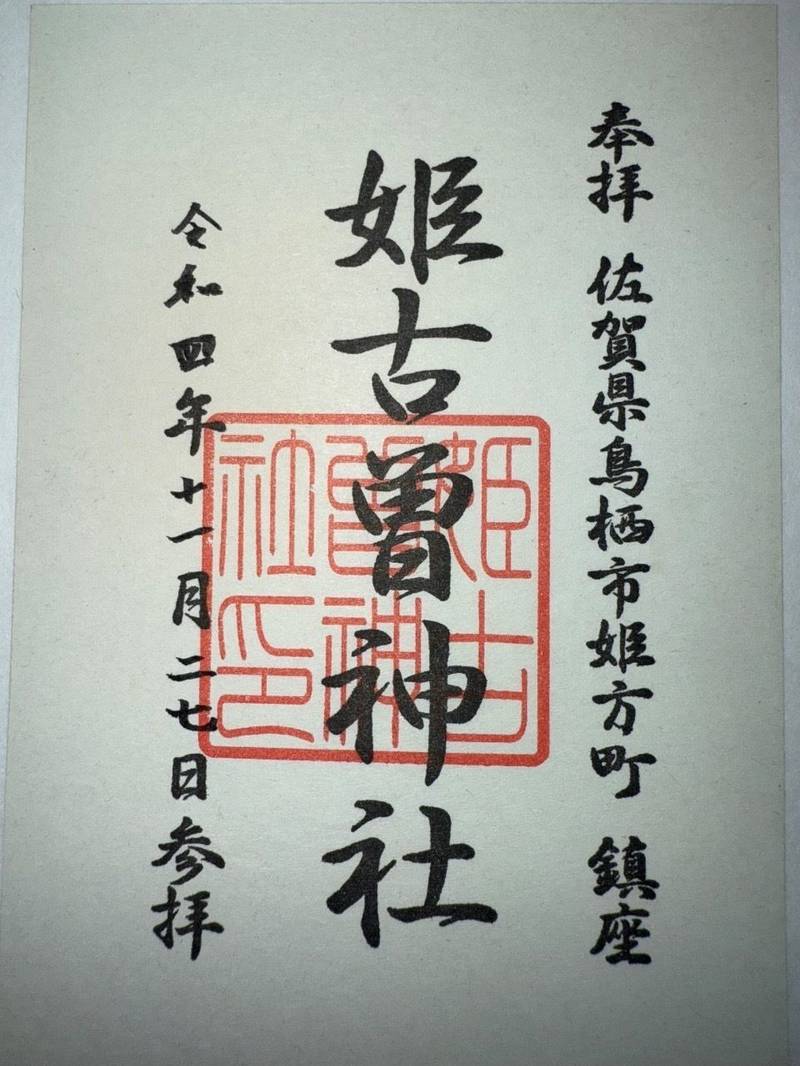 奉拝 佐賀県鳥栖市姫方町 鎮座
姫古曽神社
姫古曽神社印
令和四年十一月二七日参拝